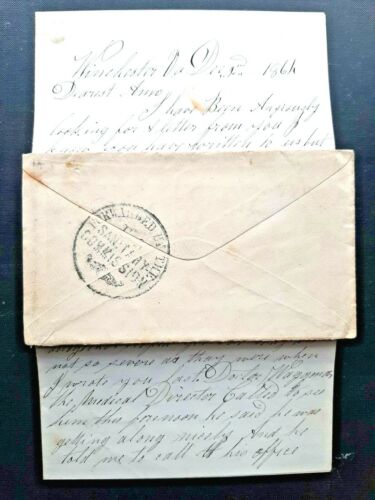 Winchester Va Dec 1864
Dearest Amo
I have Been Angziously
looking for A letter from you I
you have written to us but
FORWARDED BY THE
SANITARY
COMMISSION
not so severe as thay were when
I wrote you last Doctor
the Medical Director Called to see
him this forenoon he said he was
getting along nicely And he
told me to call at his office